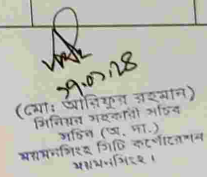 ২৯.০১.২৪
(মো: আরিফুর রহমান)
সিনিয়র সহকারী সচিব
সচিব (অ. দা.)
ময়মনসিংহ সিটি কর্পোরেশন
ময়মনসিংহ।